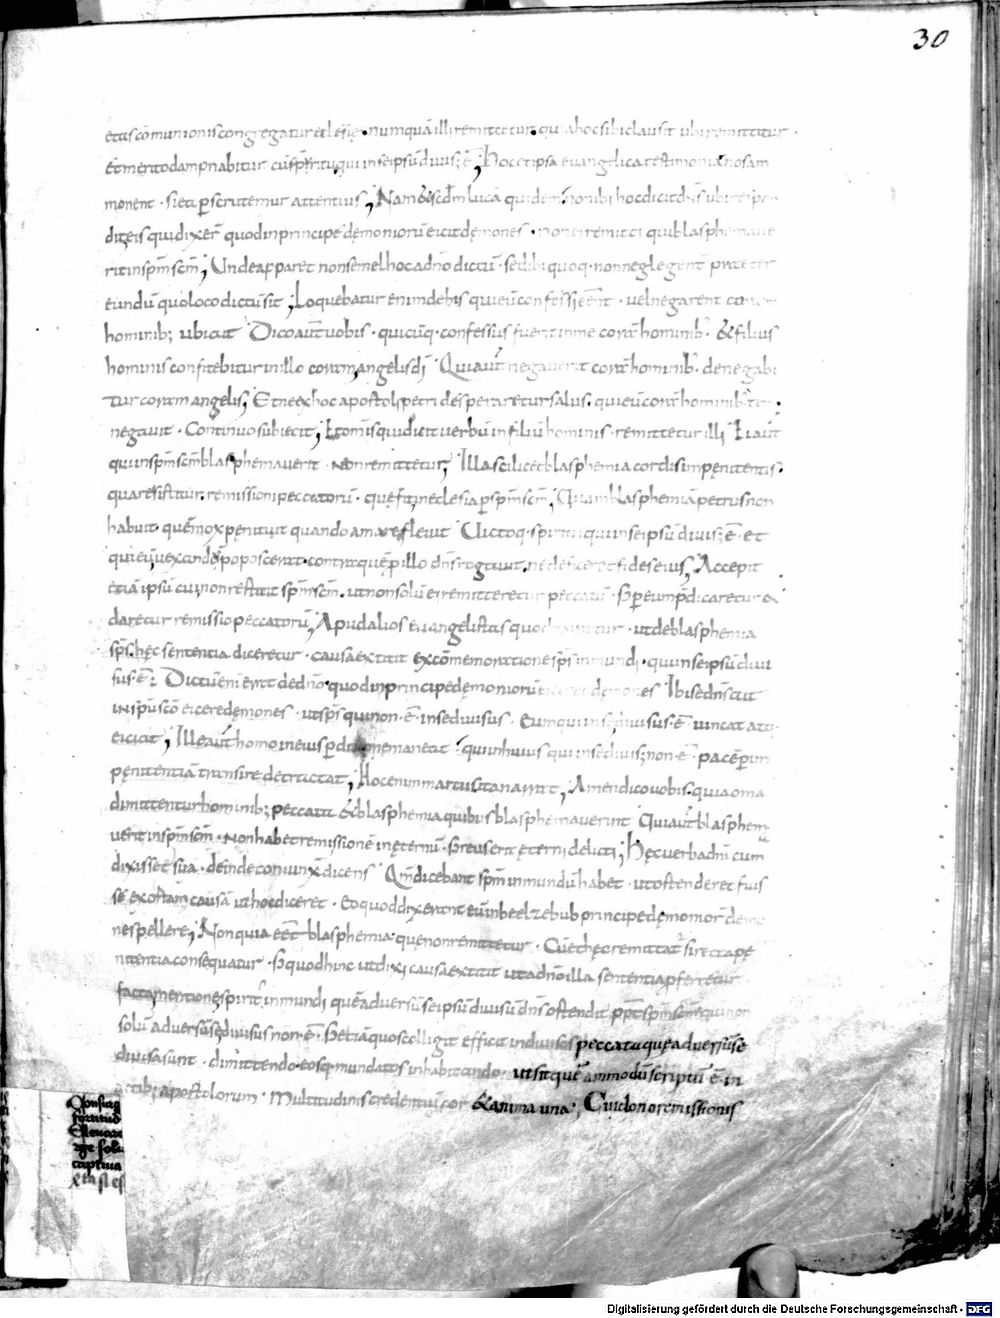 30
et as cōmunionis congregatur ecclesię. numquā illi remittetur. quia hoc sibi clausit ubi remittitur.
Et merito dampnabitur cū sp̄ritu, qui in se ipsū divisus ē; Hoc et ipsa evangelica testimonia nos am
monent. si ea ꝑscrutemur attentius; Nam & scd̄m lucā quidem non ibi hoc dicit dn̄s ubi respon
dit eis qui dixer̄ quod in principe demoniorū eicit demones. non ei remitti qui blasphemave
rit in sp̄m sc̄m; Unde apparet non semel hoc a dn̄o dictū. sed ibi quoq. non neglegent̄ prae ter
eundū quo loco dictū sit; Loquebatur enim de his qui eū confessi eēnt. vel negarent coram
hominib; ubi ait Dico aūt vobis. quicūq. confessus fuerit in me corā hominib. & filius
hominis confitebitur in illo coram angelis dī Qui aūt negaverit corā hominib. denegabi
tur coram angelis; Et ne ex hoc apostoli petri desperaretur salus. qui eū corā hominib ter
negavit. Continuo subiecit; Et omnis qui dicit verbū in filiū hominis. remittetur illi Ei aūt
qui in sp̄m sc̄m blasphemaverit. non remittetur; Illa scilicet blasphemia cordis inpęnitentis.
qua resistitur. remissioni peccatorū. quę fit in ecclesia ꝑ sp̄m sc̄m; Quam blasphemiā petrus non
habuit. quē mox penituit quando amare flevit Victoq. spiritu qui in se ipsū divisus ē. et
qui eū vexandū poposcerat. contra quē ꝑ illo dn̄s rogavit. ne deficeret fides eius; Accepit
etiā ipsū cui non restitit sp̄m sc̄m. ut non solū ei remitteretur peccatū. S; ꝑ eum p̄dicaretur &
daretur remissio peccatorū; Apud alios evangelistas quod narratur. ut de blasphemia
sp̄s hęc sententia diceretur. causa extitit ex cōmemoratione sp̄s inmundi. qui in se ipsū divi
sus ē; Dictū enī erat de dn̄o quod in principe demoniorū eiceret demones Ibi se dn̄s ait
in sp̄u sc̄o eicere demones. ut sp̄s qui non ē in se divisus. eum qui in se divisus ē vincat atq.
eiciat; Ille aūt homo in eius perditione maneat. qui in huius qui in se divisus non ē pacē ꝑ in
pęnitentiā transire detrectat; Hoc enim marcus ita narrat; Amen dico vobis. quia om̄a
dimittentur hominib; peccata & blasphemia quibus blasphemaverint Qui aūt blasphem
verit in sp̄m sc̄m. non habet remissionē in ęternū. S; reus erit ęterni delicti; Hęc verba dn̄i cum
dixisset sua. deinde coniunx̄ dicens Qm̄ dicebant sp̄m inmundū habet. ut ostenderet suis
se ex ostam causā ut hoc diceret. Eo quod dixerant eū in beelzebub principe demonior̄ demo
nes pellere; Non quia eēt blasphemia quę non remittetur. Cū et hęc remittat̄ si recta pę
nitentia consequatur. S; quod hinc ut dixi causa extitit ut a dn̄o illa sententia ꝓferretur
facta mentione spirit inmundi quē adversū se ipsū divisū dn̄s ostendit ꝓpt̄ sp̄m sc̄m qui non
solū adversū sę divisus non ē. S; etiā quos colligit efficit indivisos peccata quę adversū se
divisa sunt. dimittendo. eosq. mundatos inhabitando. ut sit quē ammodū scriptū ē in
actib; apostolorum. Multitudinis credentiū cor & anima una; Cui dono remissionis
Digitalisierung gefördert durch die Deutsche Forschungsgemeinschaft - DFG